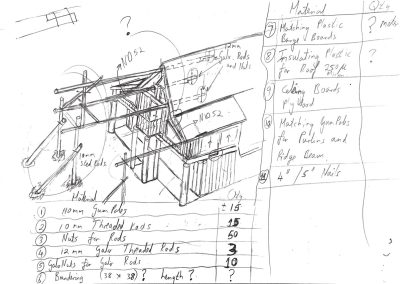 ?
NO52
12mm
Galv. Rods
and Nuts
NO52
10mm
Steel Rods
Material Qty
① 110mm GumPoles ± 15
② 10mm Threaded Rods 15
③ Nuts for Rods 50
④ 12mm Galv Threaded Rods 3
⑤ Galv Nuts for Galv Rods 10
⑥ Brandering (38 x 38) ? Length ? ?
Material Qty
⑦ Matching Plastic ? metres
Barge Boards
⑧ Insulating Plastic ?
for Roof 250
⑨ Ceiling Boards
Plywood
⑩ Matching GumPoles
for Purlins and
Ridge Beam
⑪ 4" / 5" Nails